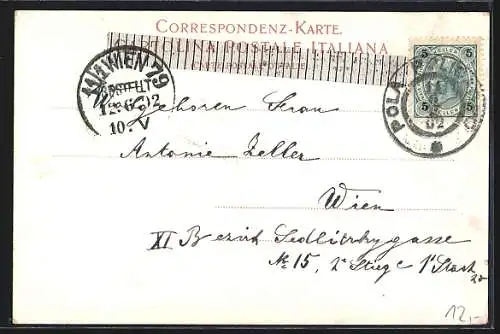 CORRESPONDENZ-KARTE.
CARTOLINA POSTALE ITALIANA
5 5
5 5
POLA
02
WIEN 79
BESTELLT
12.6.02
10.V
Wohlgeboren Frau
Antonie Zeller
Wien
XI Bezirk Sedlitzkygasse
No 15, 2 Stiege 1 Stock
12,-